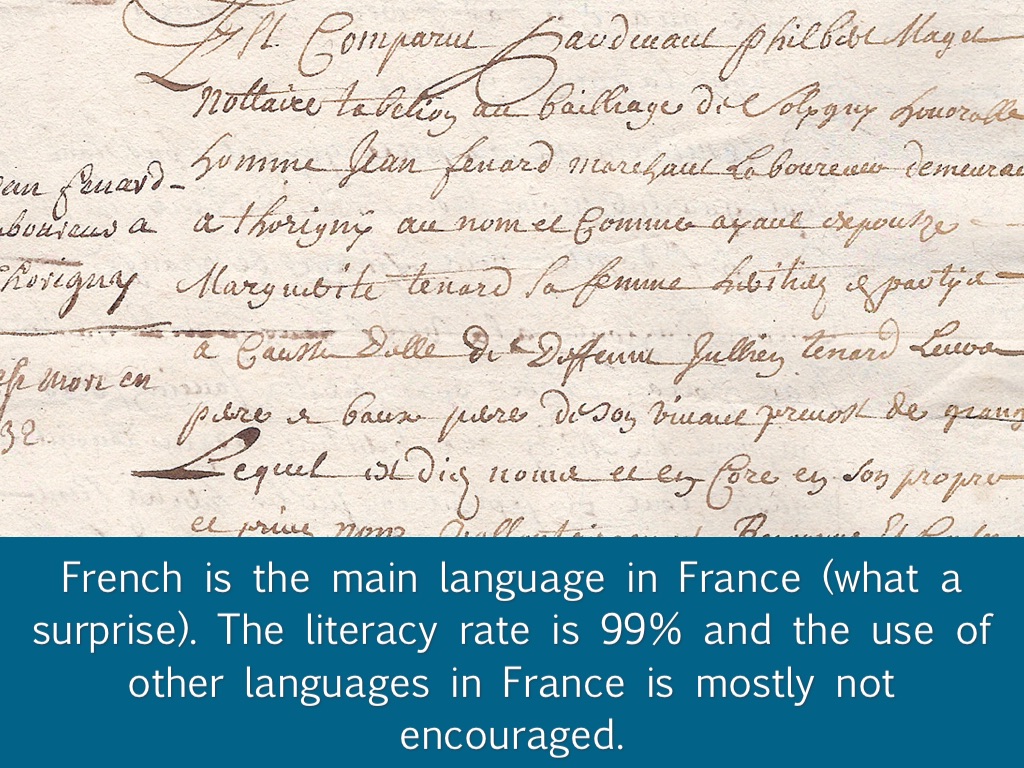 Est Comparut pardevant philbert Maget
Nottaire tabelion au bailliage de Soligny honorable
homme Jean fenard marchant Laboureur demeurant
a thorigny au nom et Comme ayant espousze
Marguerite tenard sa femme heritier en partye
a Causse delle de deffunt Jullien tenard
pere et beau pere de son vivant prevost de
Lequel est dict noms et en Core en son propre
et prive nom
Jean fenard
laboureur a
thorigny
mort en
32
French is the main language in France (what a
surprise). The literacy rate is 99% and the use of
other languages in France is mostly not
encouraged.